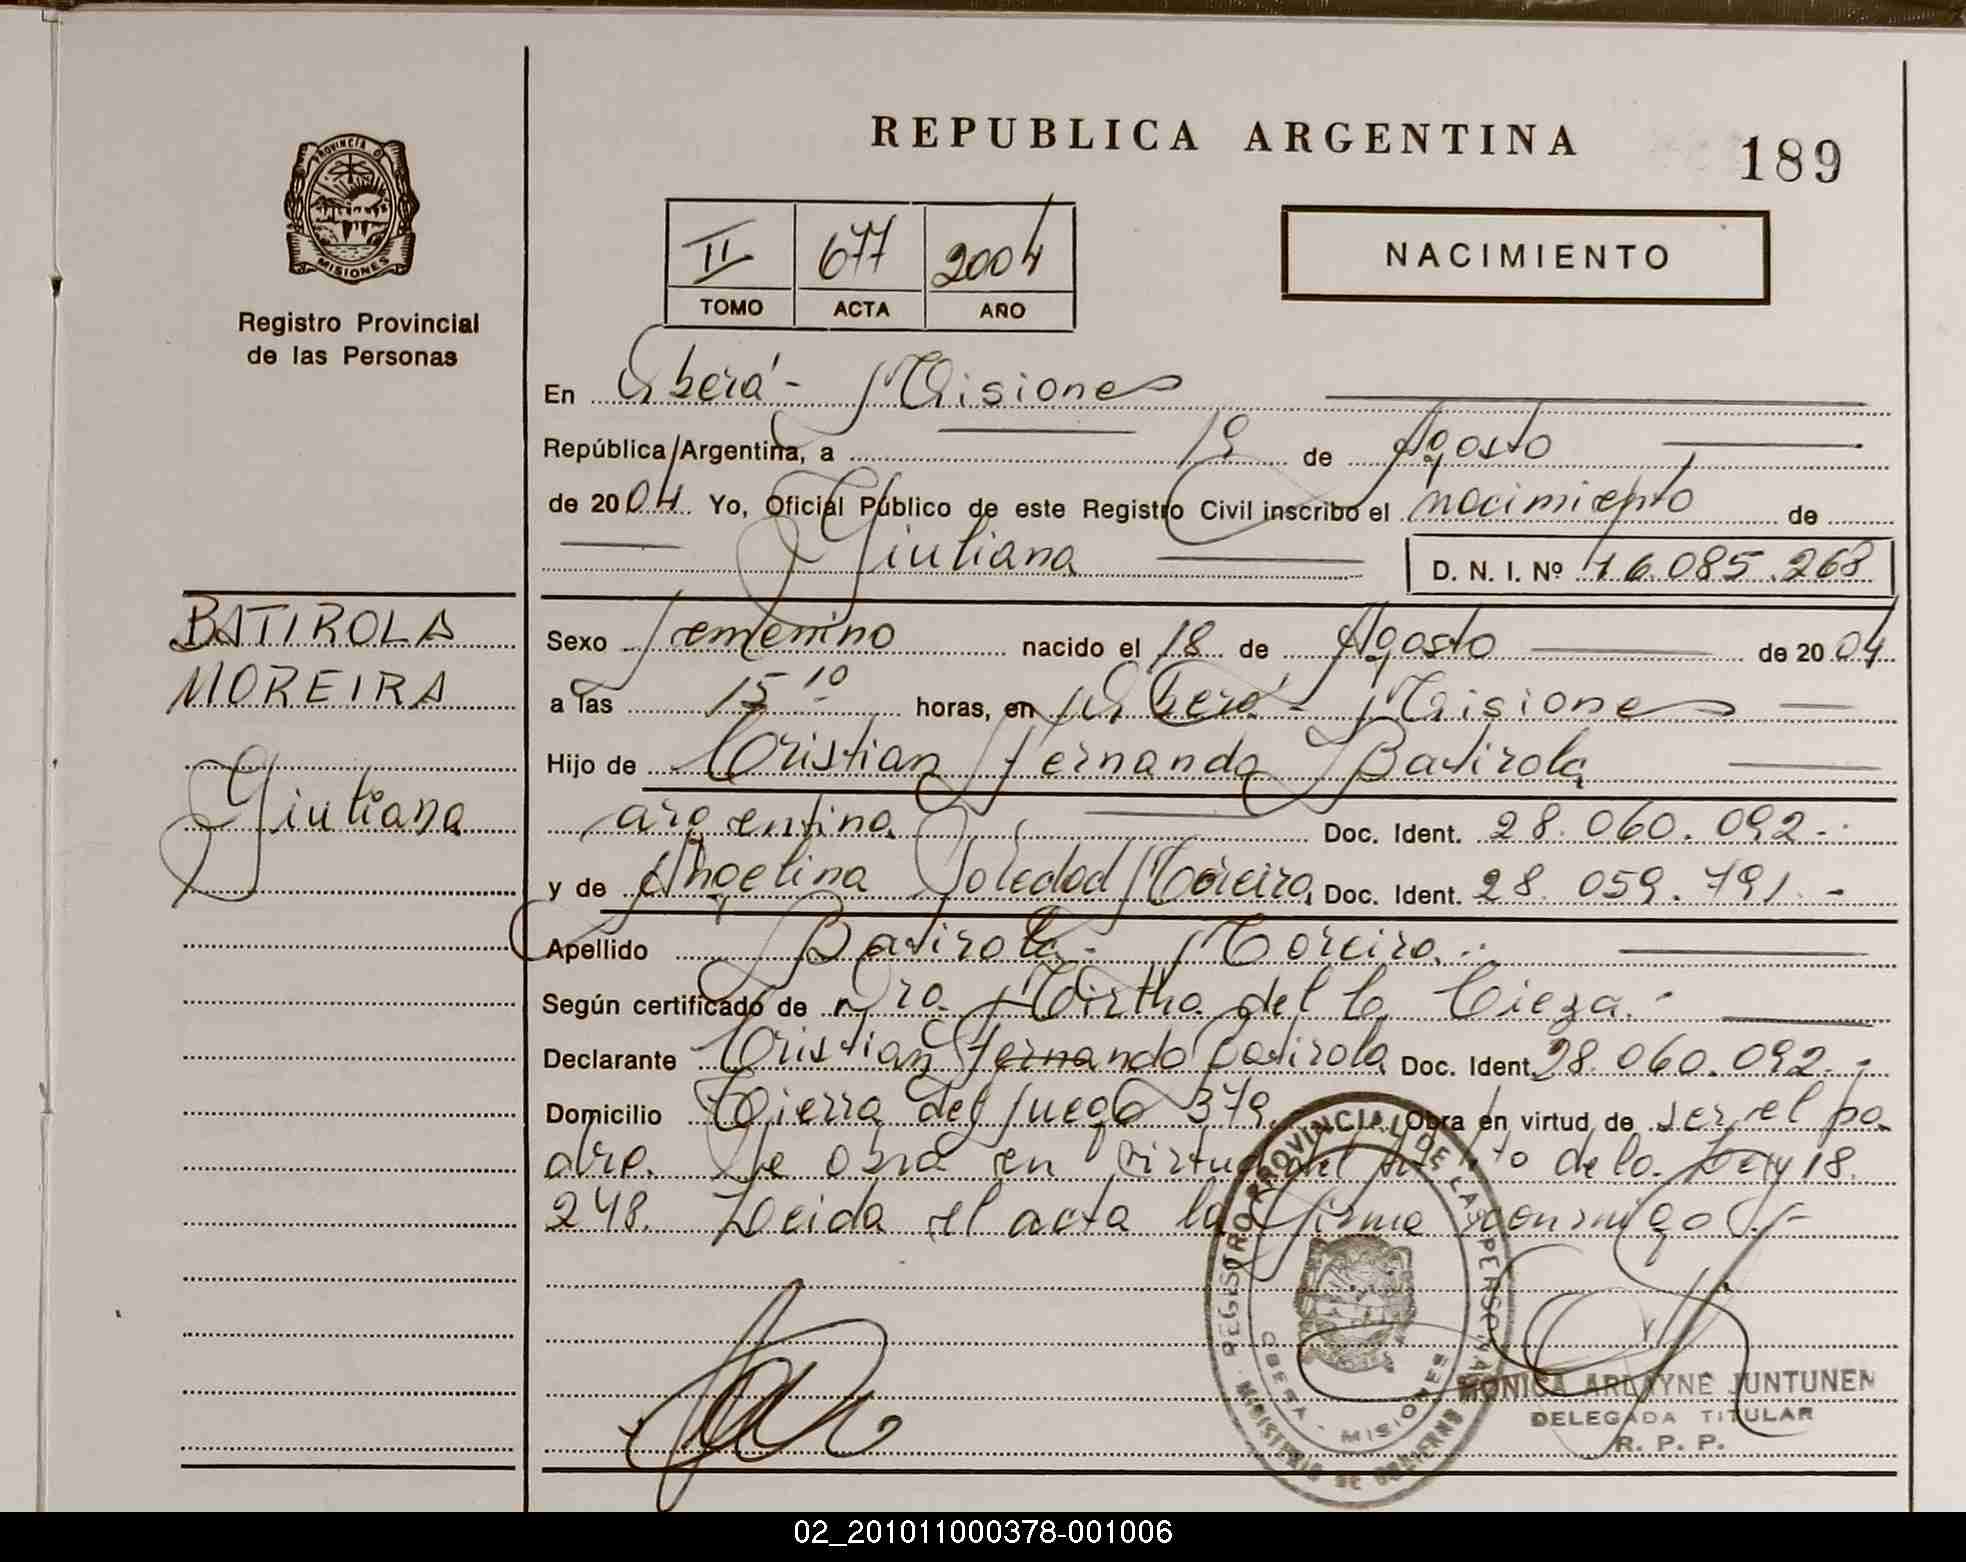 REPUBLICA ARGENTINA
189
PROVINCIA D
MISIONES
Registro Provincial
de las Personas
II 677 2004
TOMO ACTA AÑO
NACIMIENTO
En Oberá - Misiones
República Argentina, a 19 de Agosto
de 2004. Yo, Oficial Público de este Registro Civil inscribo el nacimiento de
Giuliana
D. N. I. Nº 16.085.268
BATIROLA
MOREIRA
Giuliana
Sexo femenino nacido el 18 de Agosto de 2004
a las 15 10 horas, en Oberá - Misiones
Hijo de Cristian Fernando Batirola
argentina Doc. Ident. 28.060.092.-
y de Angelina Soledad Moreira Doc. Ident. 28.059.791.-
Apellido Batirola - Moreira.-
Según certificado de Dra. Mirtha del C. Cieza.-
Declarante Cristian Fernando Batirola Doc. Ident. 28.060.092.-
Domicilio Tierra del fuego 379. Obra en virtud de ser el pa
dre. Se obra en virtud del de la Ley 18.
248. Leida el acta la firma conmigo.-
REGISTRO PROVINCIAL DE LAS PERSONAS
OBERA - MISIONES
MINISTERIO DE GOBIERNO
MONICA ARLAYNE JUNTUNEN
DELEGADA TITULAR
R. P. P.
02_201011000378-001006